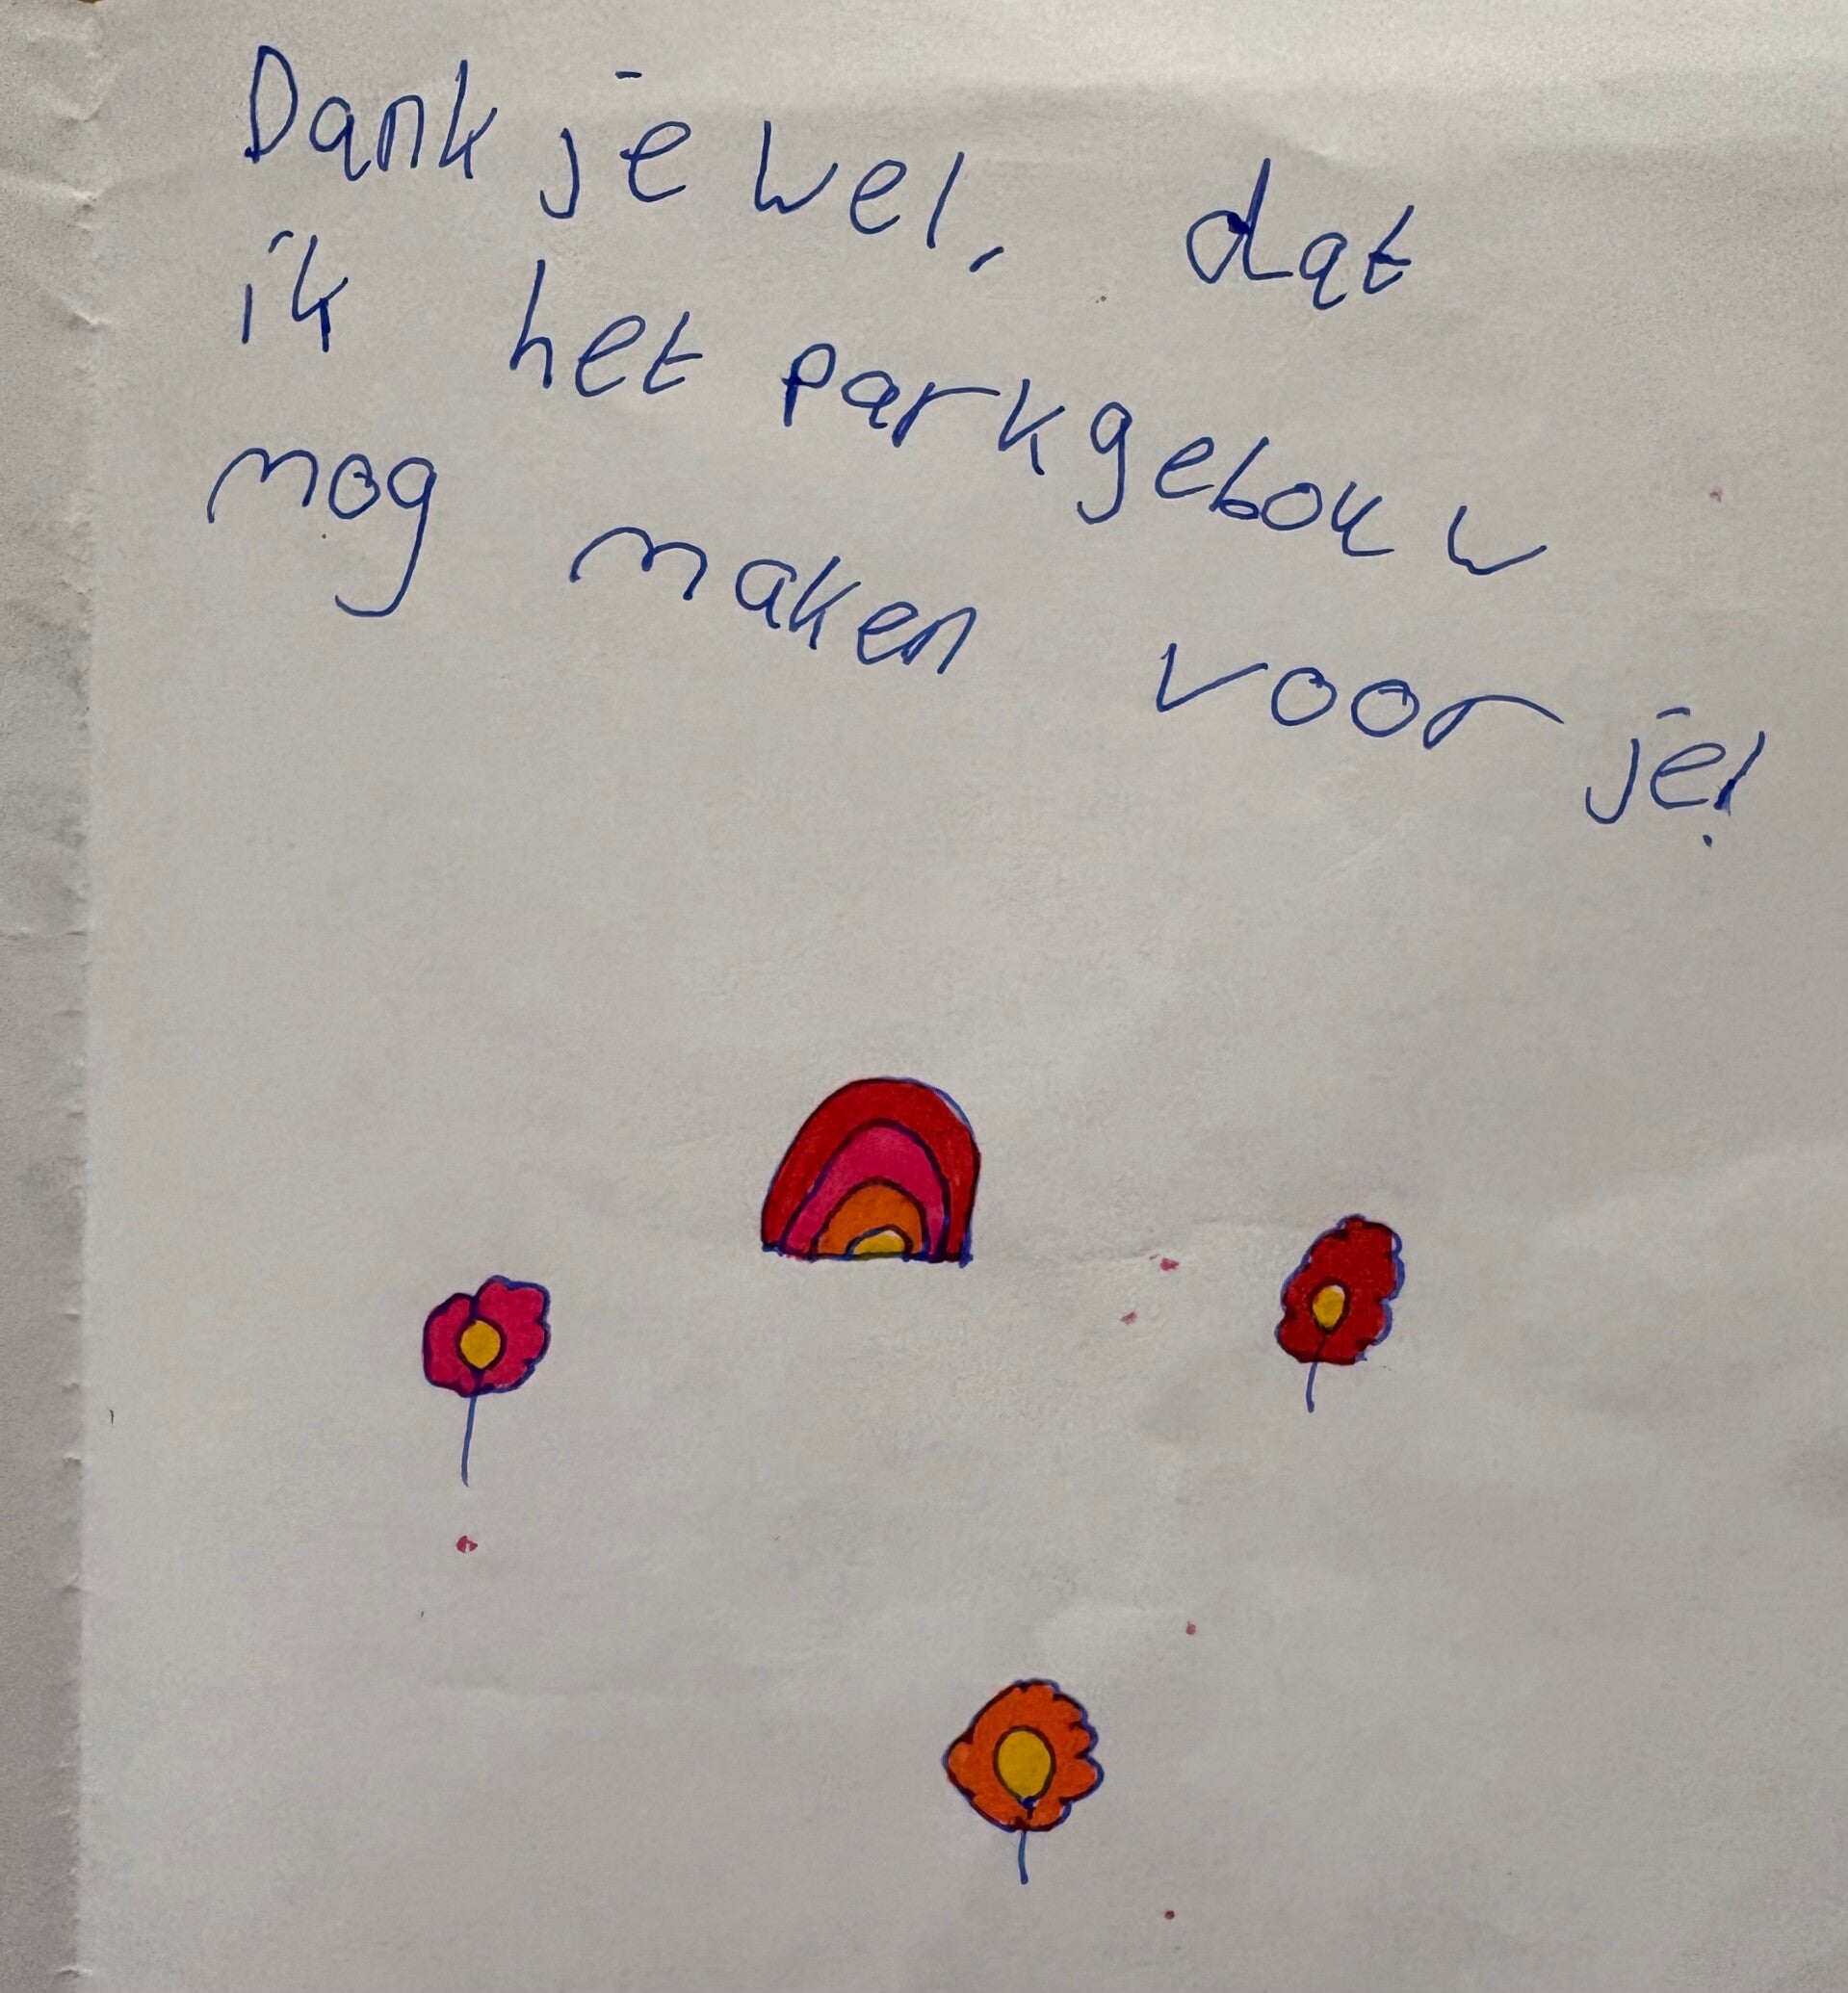 Dank je wel, dat
ik het parkgebouw
mog maken voor je!